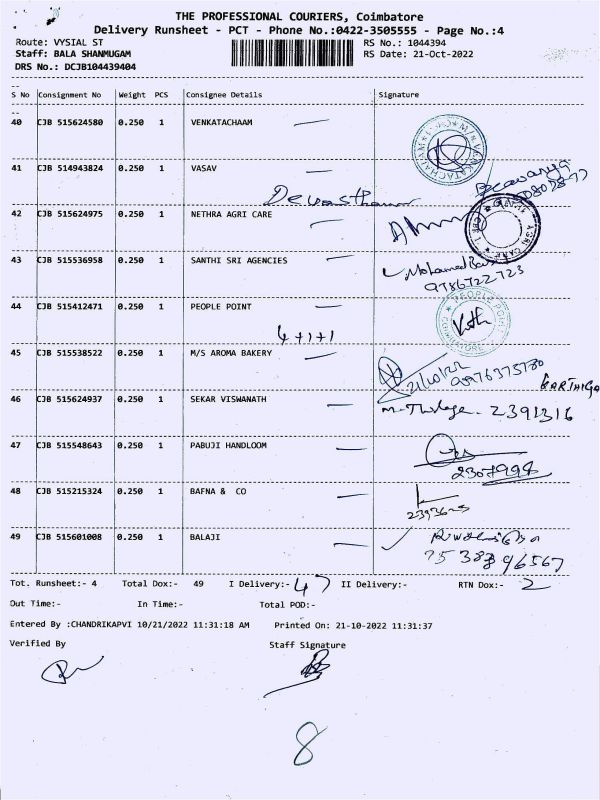 THE PROFESSIONAL COURIERS, Coimbatore
Delivery Runsheet - PCT - Phone No.:0422-3505555 - Page No.:4
Route: VYSIAL ST RS No.: 1044394
Staff: BALA SHANMUGAM RS Date: 21-Oct-2022
DRS No.: DCJB104439404
S No Consignment No Weight PCS Consignee Details Signature
40 CJB 515624580 0.250 1 VENKATACHAAM
41 CJB 514943824 0.250 1 VASAV
42 CJB 515624975 0.250 1 NETHRA AGRI CARE
43 CJB 515536958 0.250 1 SANTHI SRI AGENCIES
9786722723
44 CJB 515412471 0.250 1 PEOPLE POINT
PEOPLE POINT COIMBATORE
4+1+1
45 CJB 515538522 0.250 1 M/S AROMA BAKERY
21/10/22
46 CJB 515624937 0.250 1 SEKAR VISWANATH 2391316
47 CJB 515548643 0.250 1 PABUJI HANDLOOM
48 CJB 515215324 0.250 1 BAFNA & CO
49 CJB 515601008 0.250 1 BALAJI
Tot. Runsheet:- 4 Total Dox:- 49 I Delivery:- 47 II Delivery:- RTN Dox:- 2
Out Time:- In Time:- Total POD:-
Entered By :CHANDRIKAPVI 10/21/2022 11:31:18 AM Printed On: 21-10-2022 11:31:37
Verified By Staff Signature
8